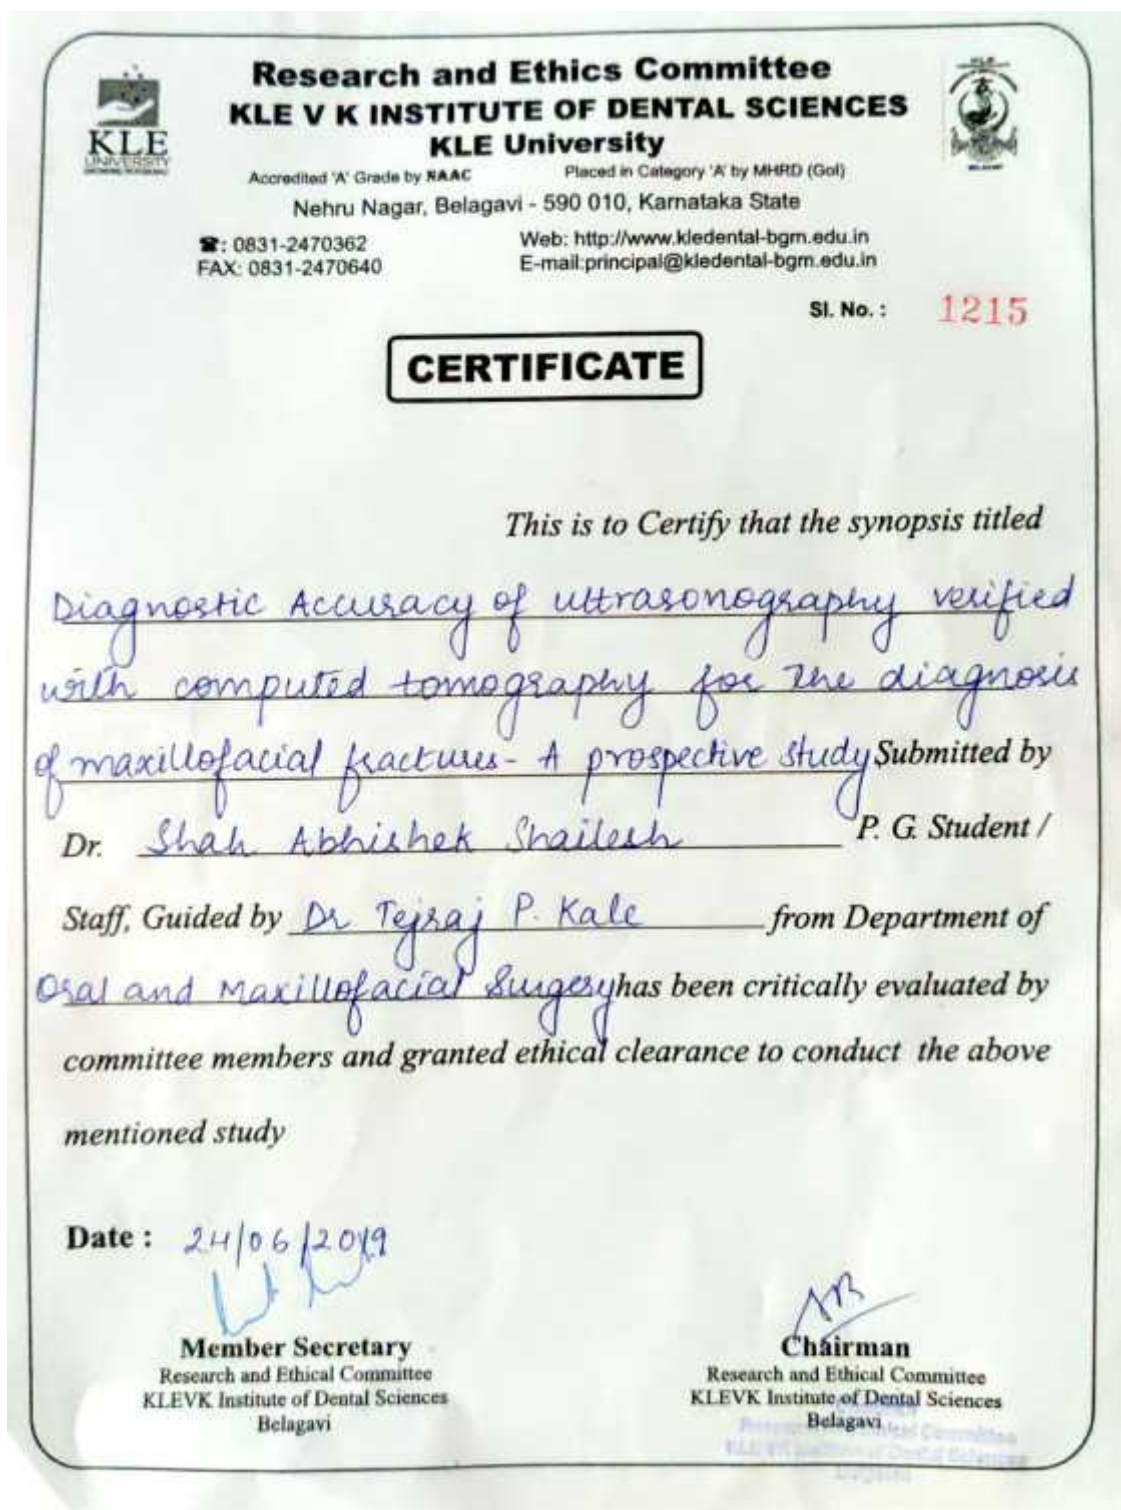 Research and Ethics Committee
KLE V K INSTITUTE OF DENTAL SCIENCES
KLE University
KLE
UNIVERSITY
Accredited 'A' Grade by NAAC Placed in Category 'A' by MHRD (GoI)
Nehru Nagar, Belagavi - 590 010, Karnataka State
☎: 0831-2470362 Web: http://www.kledental-bgm.edu.in
FAX: 0831-2470640 E-mail:principal@kledental-bgm.edu.in
Sl. No. : 1215
CERTIFICATE
This is to Certify that the synopsis titled
Diagnostic Accuracy of ultrasonography verified
with computed tomography for the diagnosis
of maxillofacial fractures - A prospective study Submitted by
Dr. Shah Abhishek Shailesh P. G. Student /
Staff, Guided by Dr Tejraj P. Kale from Department of
Oral and Maxillofacial Surgery has been critically evaluated by
committee members and granted ethical clearance to conduct the above
mentioned study
Date : 24/06/2019
Member Secretary
Research and Ethical Committee
KLEVK Institute of Dental Sciences
Belagavi
Chairman
Research and Ethical Committee
KLEVK Institute of Dental Sciences
Belagavi